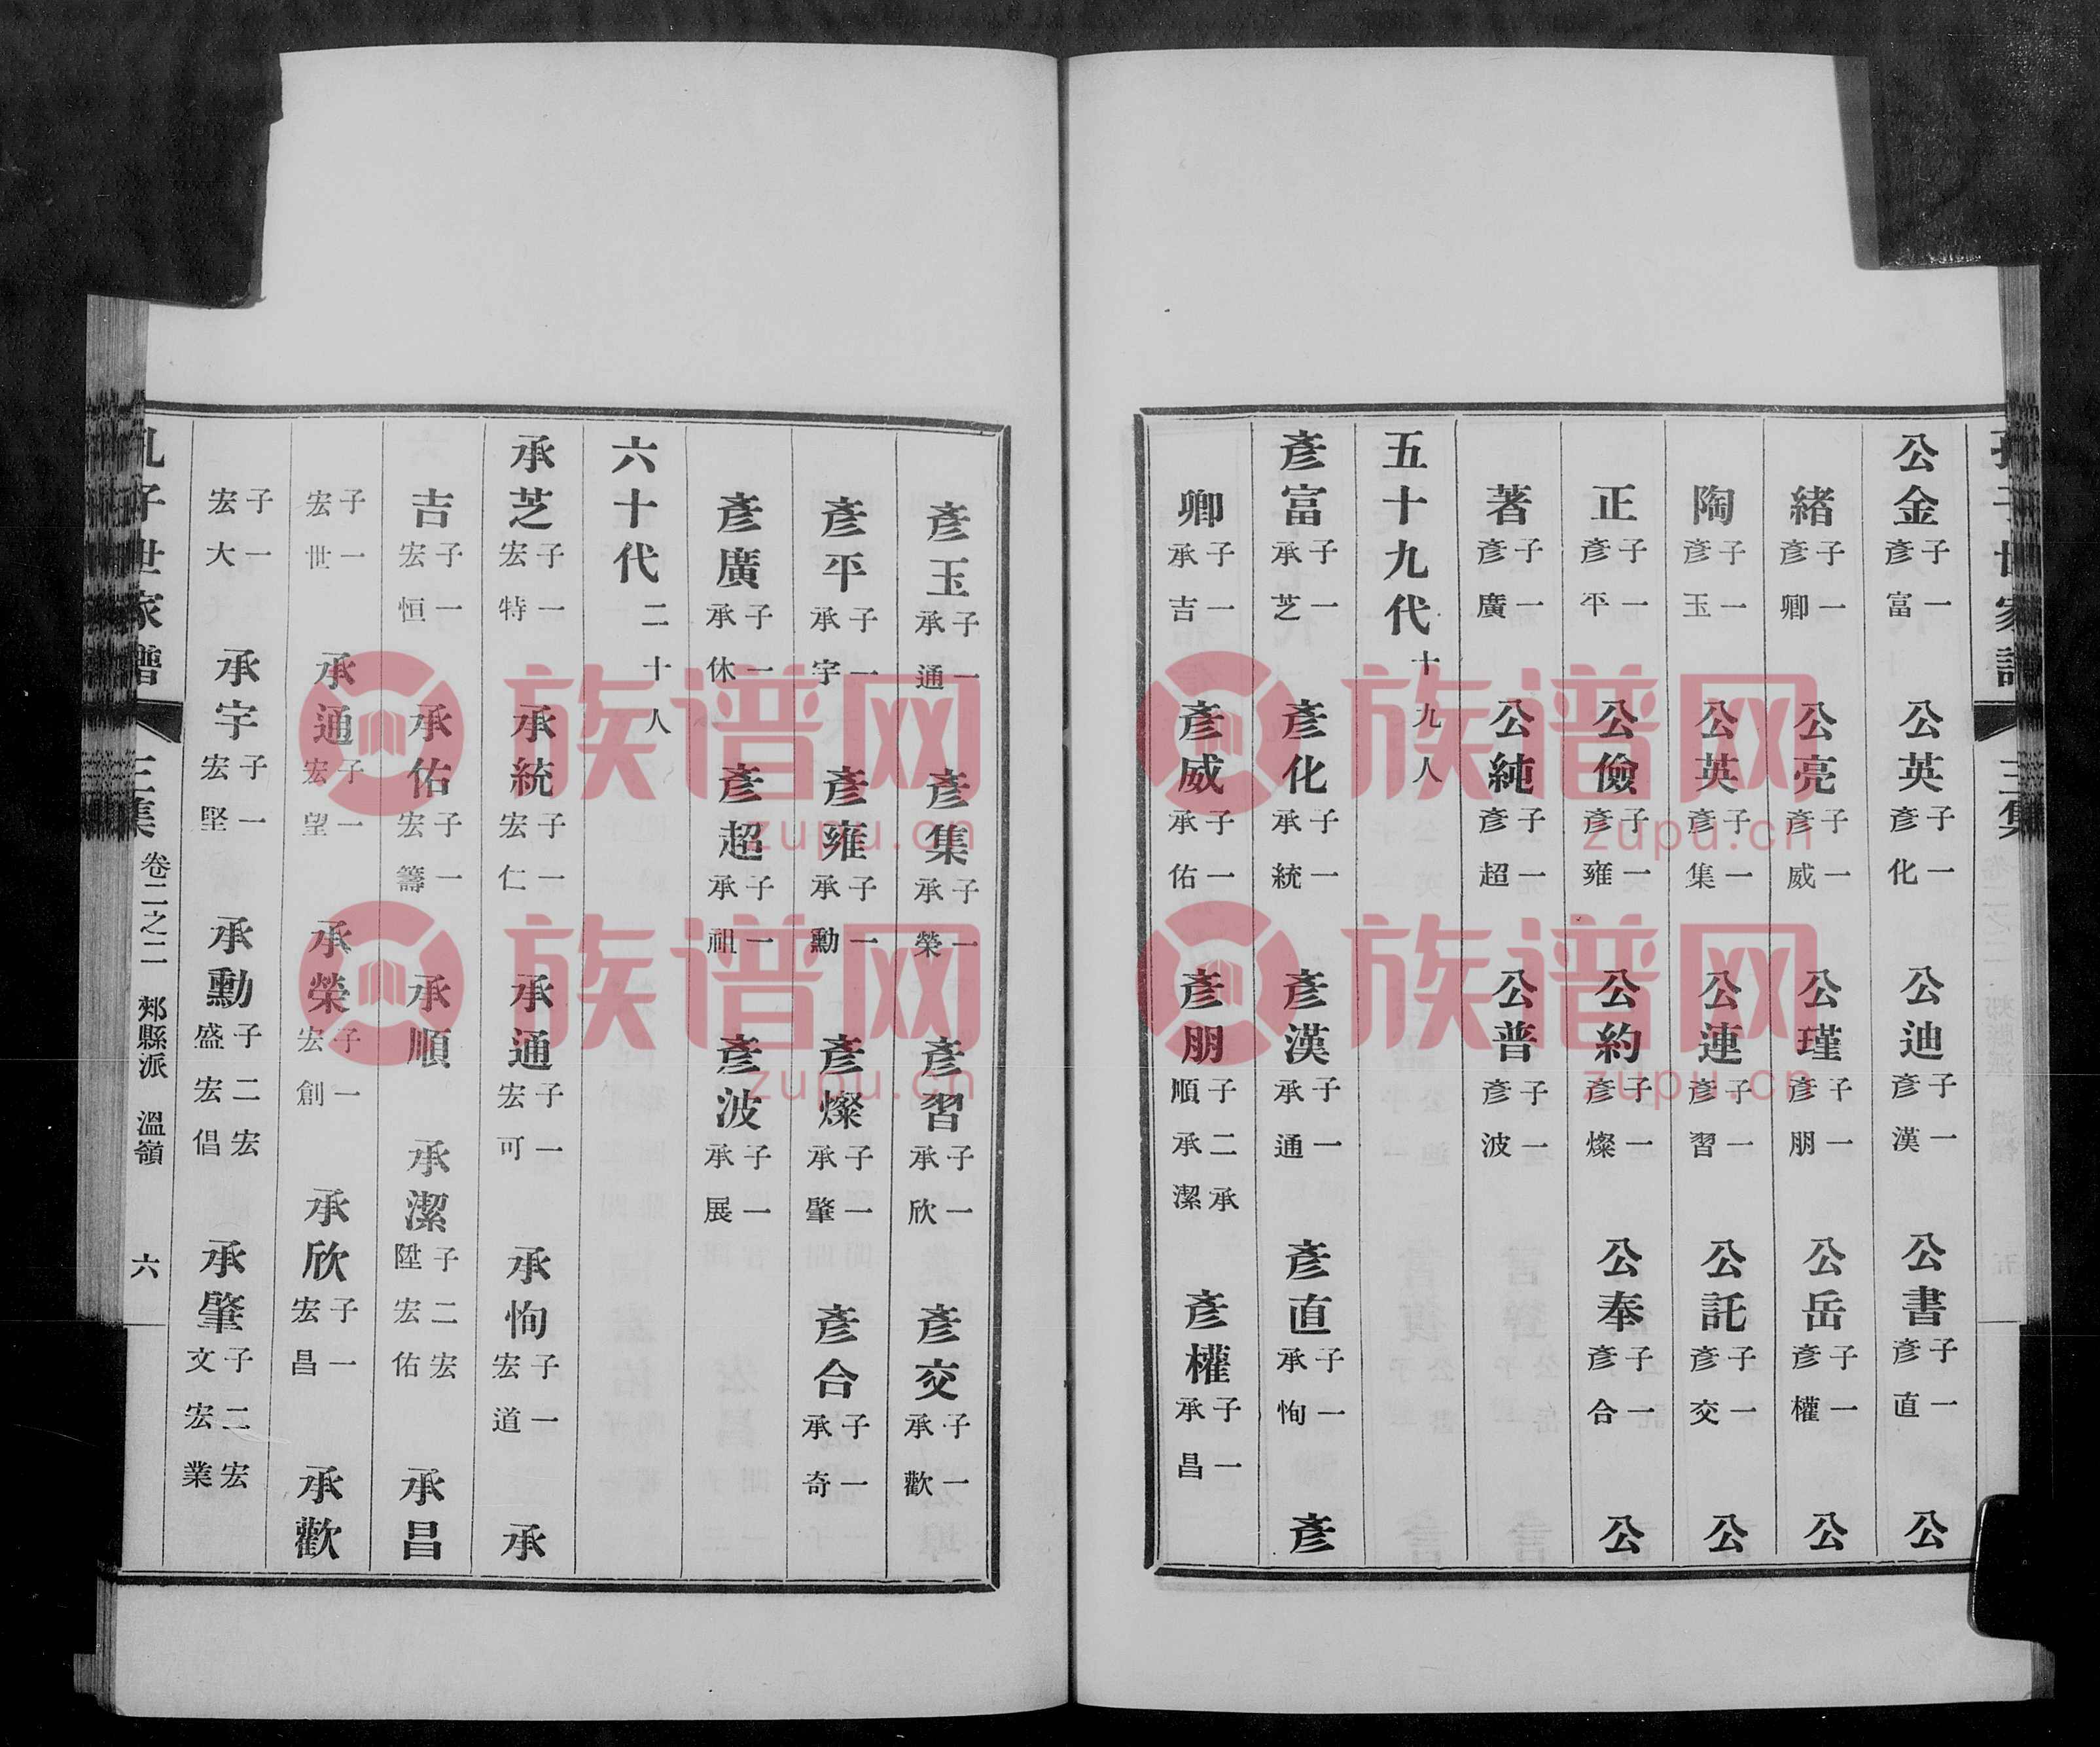 孔子世家譜 三集
公金 子一彥富 公英 子一彥化 公迪 子一彥漢 公書 子一彥直 公
緒 子一彥卿 公亮 子一彥威 公瑾 子一彥朋 公岳 子一彥權 公
陶 子一彥玉 公英 子一彥集 公連 子一彥習 公託 子一彥交 公
正 子一彥平 公儉 子一彥雍 公約 子一彥燦 公奉 子一彥合 公
著 子一彥廣 公純 子一彥超 公普 子一彥波
五十九代 十九人
彥富 子一承芝 彥化 子一承統 彥漢 子一承通 彥直 子一承恂 彥
卿 子一承吉 彥威 子一承佑 彥朋 子二承順承潔 彥權 子一承昌
彥玉 子一承通 彥集 子一承榮 彥習 子一承欣 彥交 子一承歡
彥平 子一承宇 彥雍 子一承勳 彥燦 子一承肇 彥合 子一承奇
彥廣 子一承休 彥超 子一承祖 彥波 子一承展
六十代 二十人
承芝 子一宏特 承統 子一宏仁 承通 子一宏可 承恂 子一宏道 承
吉 子一宏恒 承佑 子一宏籌 承順 承潔 子二宏陞宏佑 承昌
子一宏世 承通 子一宏望 承榮 子一宏創 承欣 子一宏昌 承歡
子一宏大 承宇 子一宏堅 承勳 子二宏盛宏倡 承肇 子二宏文宏業
孔子世家譜 三集 卷二之二 郟縣派 溫嶺 六
族谱网
zupu.cn
族谱网
zupu.cn
族谱网
zupu.cn
族谱网
zupu.cn